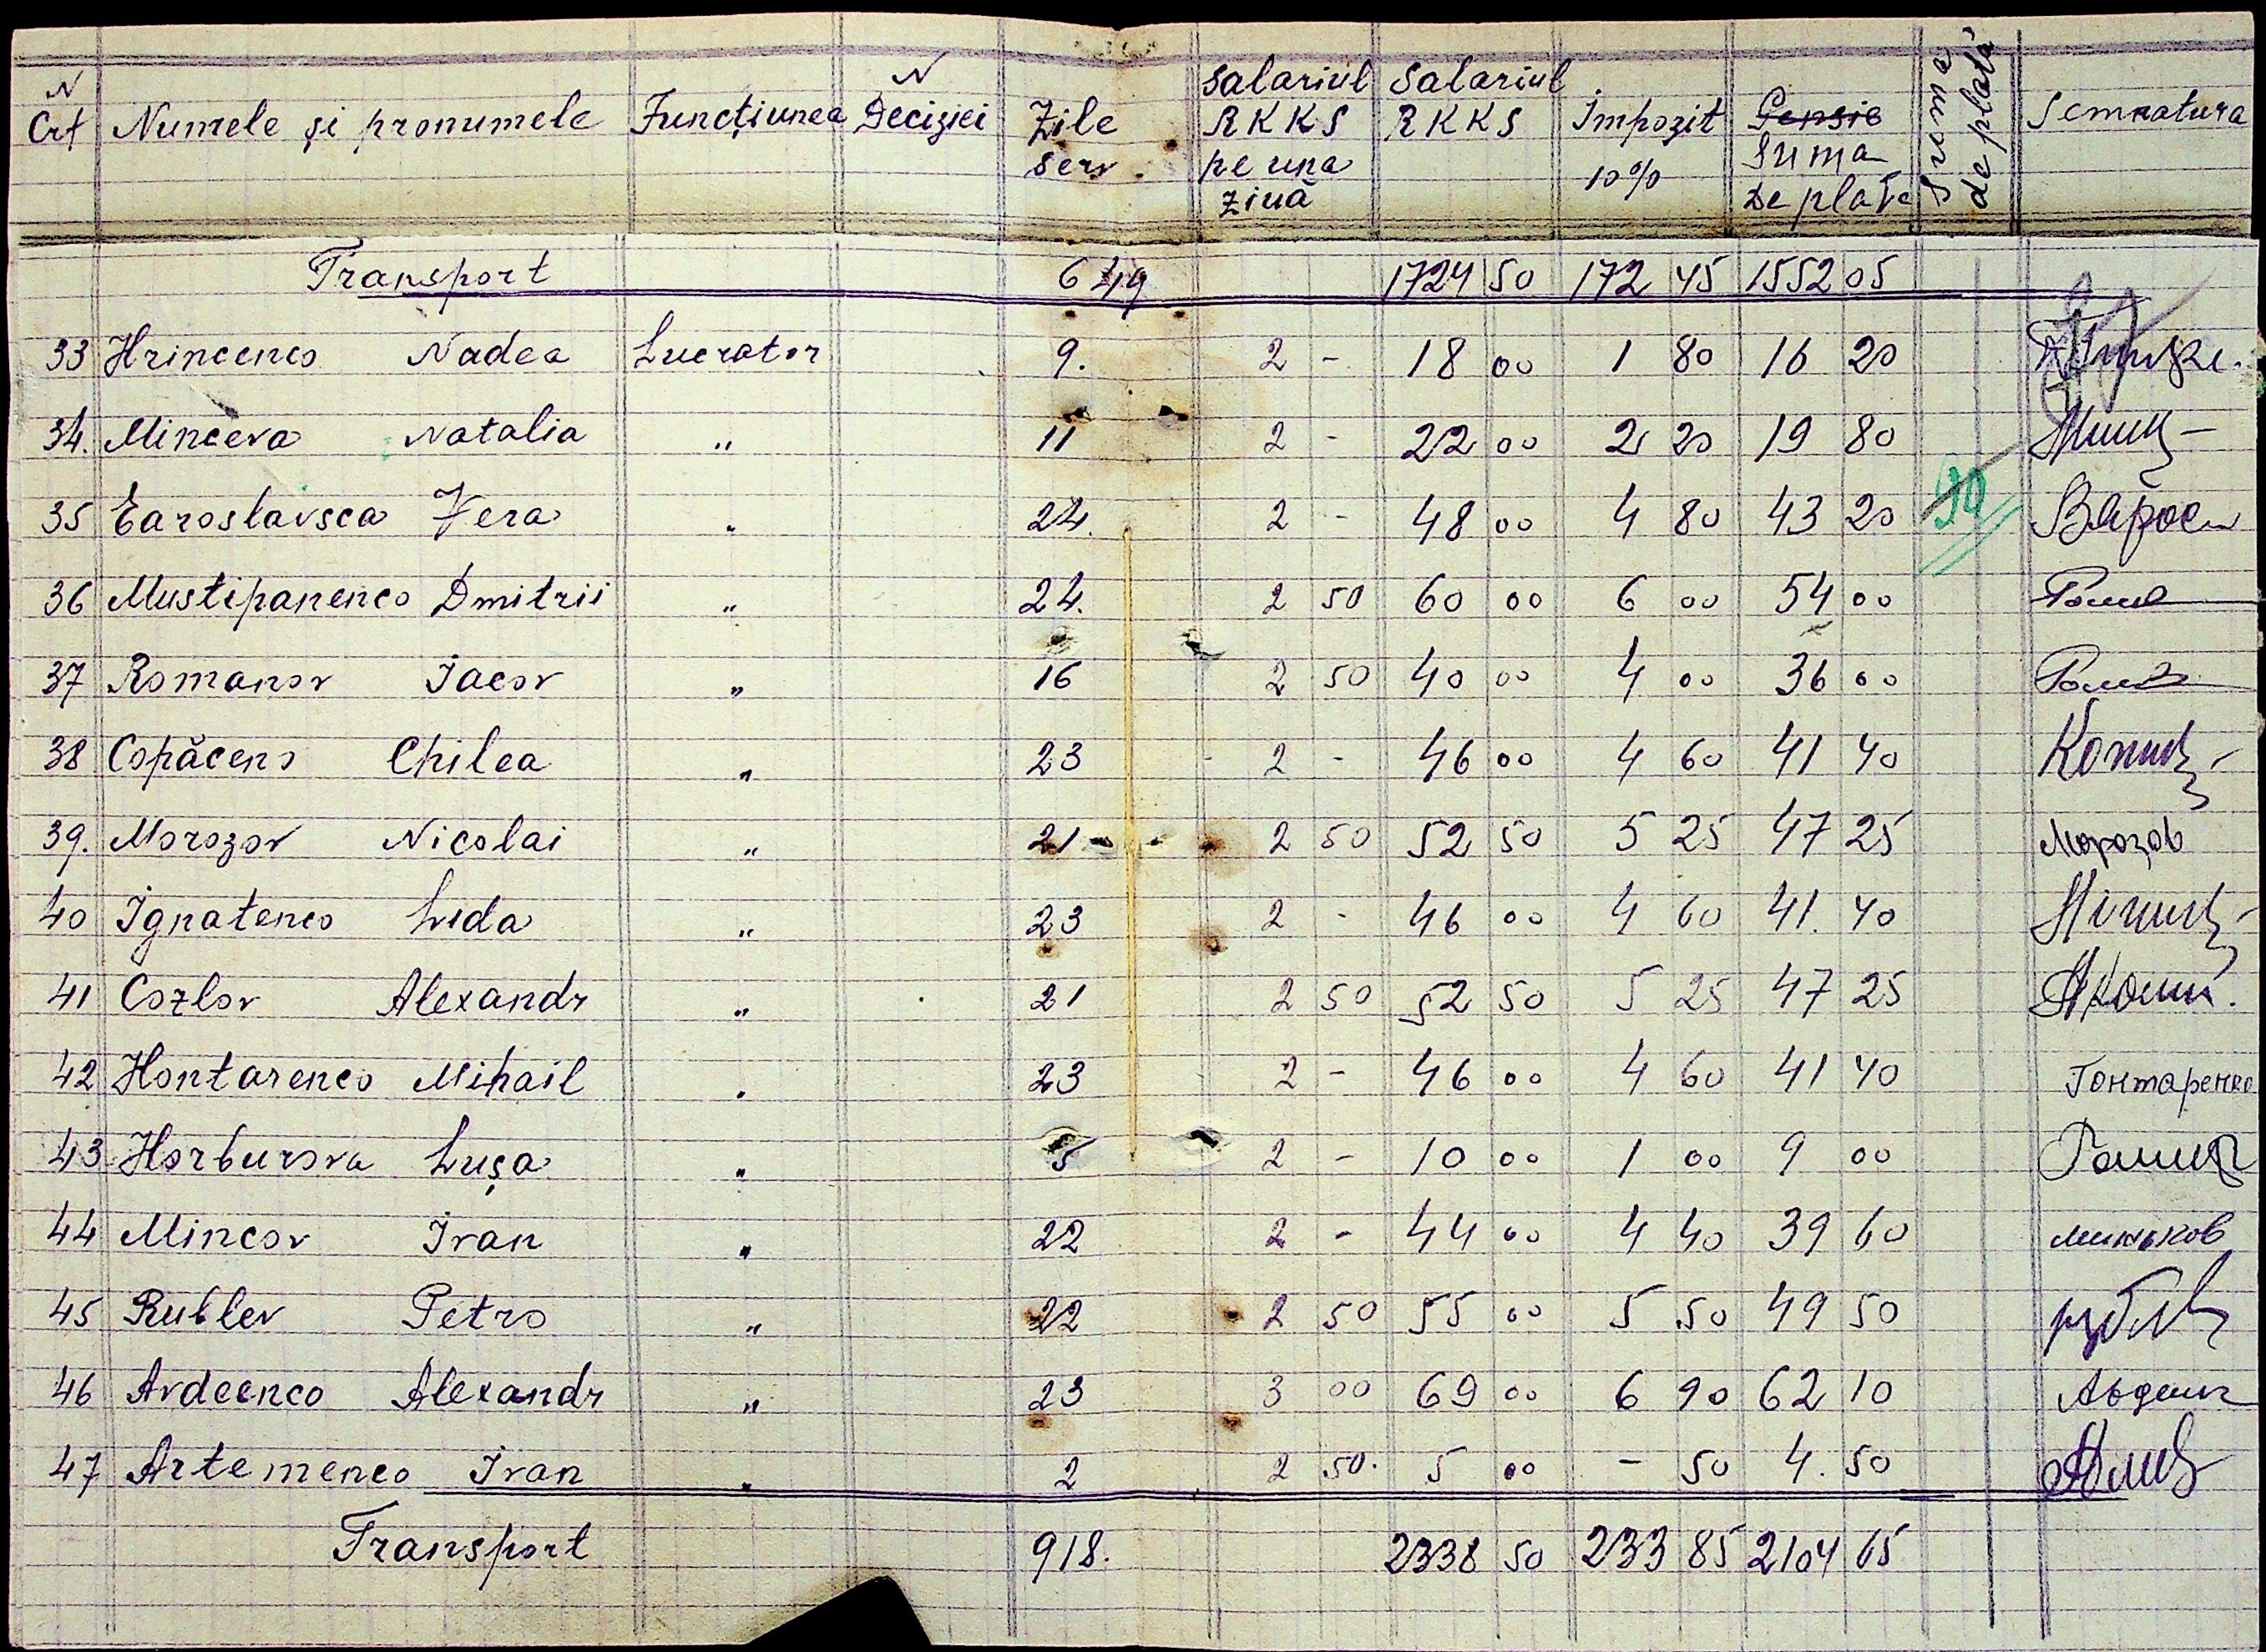 N Crt Numele și pronumele Funcțiunea N Deciziei Zile serv. Salariul RKKS pe una ziuă Salariul RKKS Impozit 10% Pensie Suma De plată Suma de plată Semnatura
Transport 649 1724 50 172 45 1552 05
33 Hrincenco Nadea Lucrator 9. 2 - 18 00 1 80 16 20
34. Minceva Natalia " 11 2 - 22 00 2 20 19 80
35 Earoslavsca Vera " 24. 2 - 48 00 4 80 43 20 90
36 Mustipanenco Dmitrii " 24. 2 50 60 00 6 00 54 00
37 Romanov Iacov " 16 2 50 40 00 4 00 36 00
38 Copăceno Chilea " 23 2 - 46 00 4 60 41 40
39. Morozov Nicolai " 21 2 50 52 50 5 25 47 25 Морозов
40 Ignatenco Lida " 23 2 - 46 00 4 60 41. 40
41 Cozlov Alexandr " 21 2 50 52 50 5 25 47 25
42 Hontarenco Mihail " 23 2 - 46 00 4 60 41 40 Гонтаренко
43 Horburova Lușa " 5 2 - 10 00 1 00 9 00
44 Mincov Ivan " 22 2 - 44 00 4 40 39 60 миньков
45 Rublev Petro " 22 2 50 55 00 5 50 49 50
46 Avdeenco Alexandr " 23 3 00 69 00 6 90 62 10
47 Artemenco Ivan " 2 2 50. 5 00 - 50 4. 50
Transport 918. 2338 50 233 85 2104 65